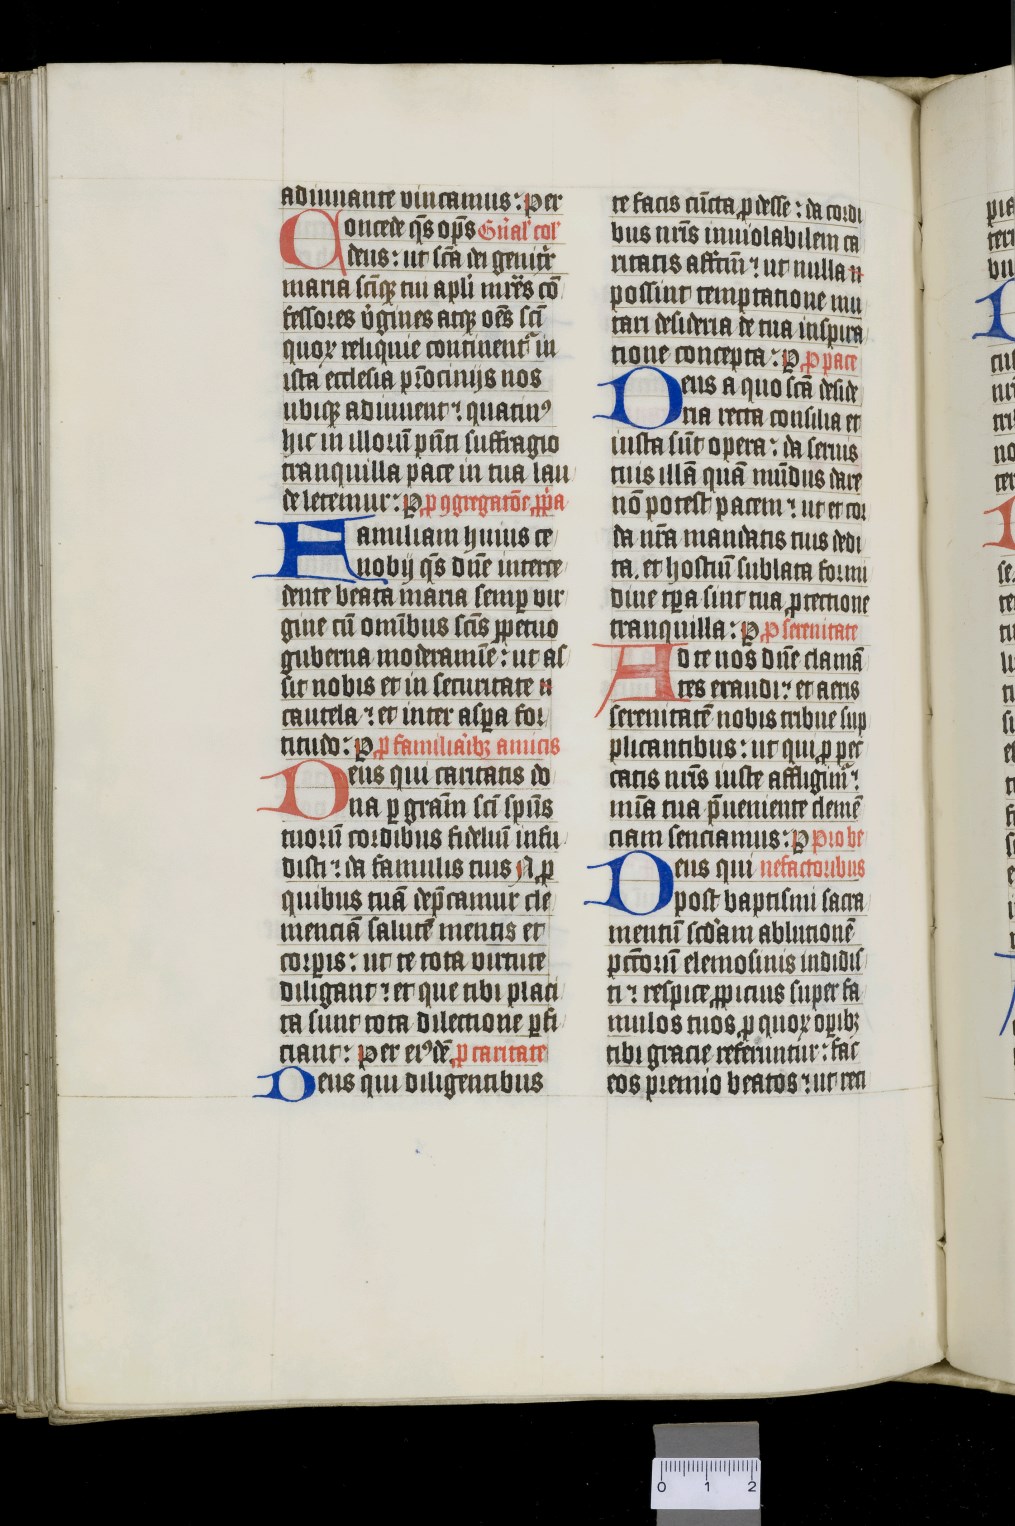 adiuuante vincamus: Per
Concede q̄s op̄s Gn̄al' col'
deus: ut sc̄a dei genitr̄
maria sc̄iq̢ tui apl̄i mr̄es cō
fessores v̄gines atq̢ oēs sc̄i
quoꝝ reliquie continent᷑ in
ista ecclesia pr̄ocinijs nos
ubiq̢ adiuuent ⁊ quatinꝰ
hic in illorū pn̄ti suffragio
tranquilla pace in tua lau
de letemur: P ꝓ ꝯgregatōe ꝓp̄a
Familiam huius ce
nobij q̄s dn̄e interce
dente beata maria semꝑ vir
gine cū omībus sc̄is ꝑpetuo
guberna moderamīe: ut as
sit nobis et in securitate
cautela ⁊ et inter asꝑa for
titudo: P ꝓ familiaribꝫ amicis
Deus qui caritatis do
na ꝑ gra᷑m sc̄i sp̄us
tuorū cordibus fideliū infu
disti ⁊ da famulis tuis N ꝓ
quibus tuā dep̄camur cle
menciā salutē mentis et
corꝑis: ut te tota virtute
diligant ⁊ et que tibi placi
ta sunt tota dilectione ꝑfi
ciant: Per eiꝰdē ꝓ caritate
Deus qui diligentibus
te facis cūcta ꝓdesse: da cordi
bus nr̄is inuiolabilem ca
ritatis affc̄m ⁊ ut nulla
possint temptatione mu
tari desideria de tua inspira
tione concepta: P ꝓ pace
Deus a quo sc̄a deside
ria recta consilia et
iusta sūt opera: da seruis
tuis illā quā mūdus dare
nō potest pacem ⁊ ut et cor
da nr̄a mandatis tuis dedi
ta. et hostiū sublata formi
dine tꝑa sint tua ꝓtectione
tranquilla: P ꝓ serenitate
Ad te nos dn̄e clamā
tes exaudi ⁊ et aeris
serenitatē nobis tribue sup
plicantibus: ut qui ꝓ pec
catis nr̄is iuste affligim᷑ ⁊
mīa tua p̄ueniente clemē
ciam senciamus: P Pro be
Deus qui nefactoribus
post baptismi sacra
mentū scd̄am ablutionē
pctōrū elemosinis indidis
ti ⁊ respice ꝓpicius super fa
mulos tuos ꝓ quoꝝ oꝑibꝫ
tibi gracie referuntur: fac
eos premio beatos ⁊ ut reti